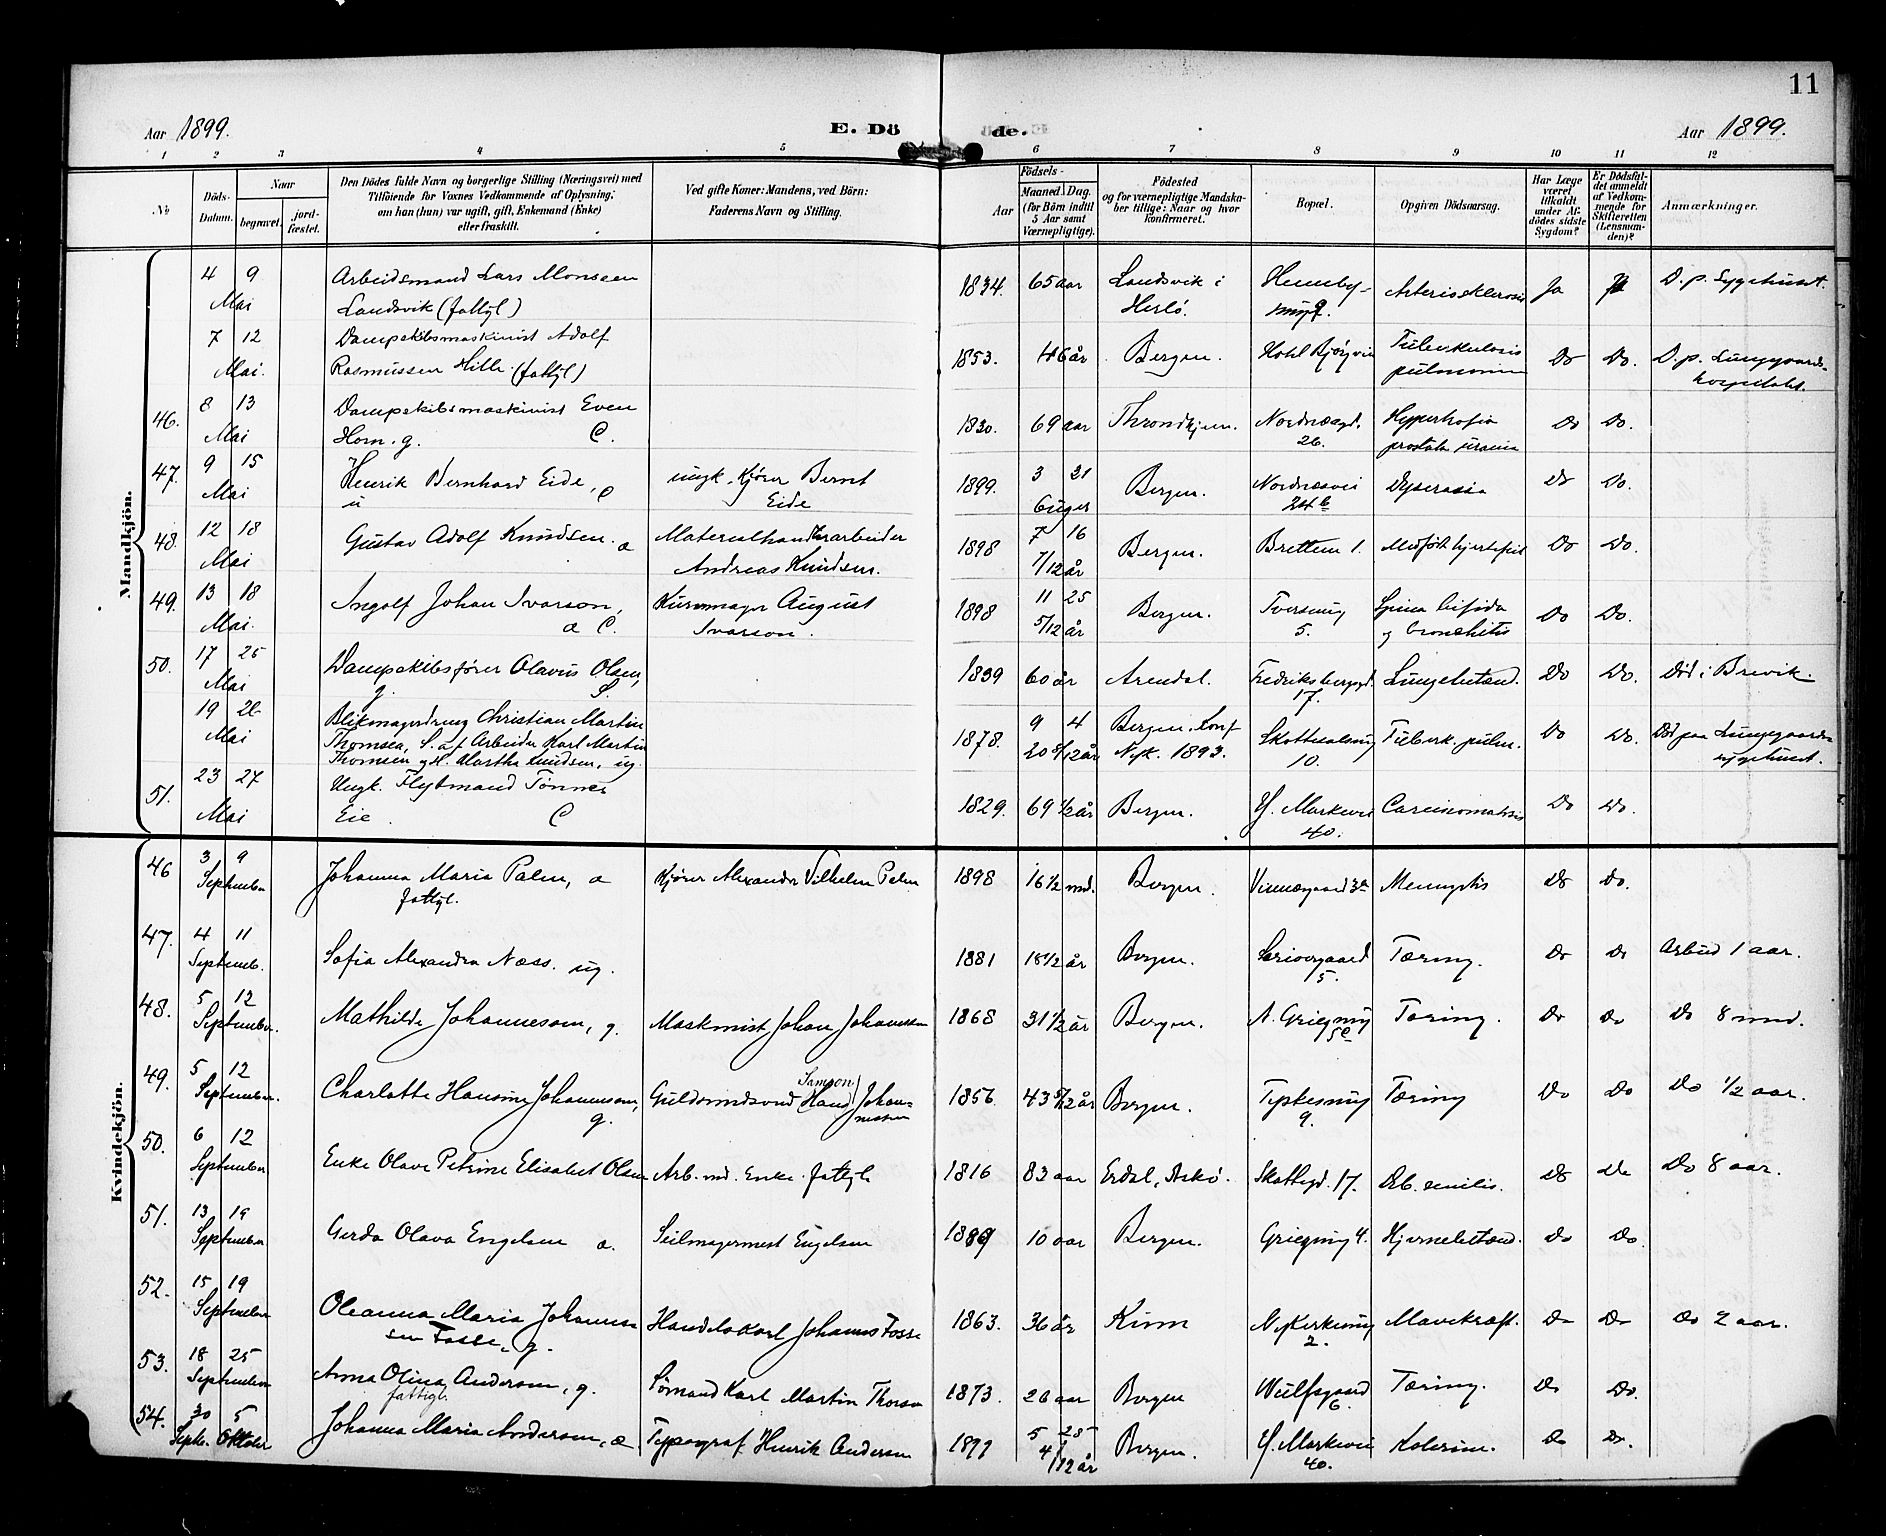 11
Aar 1899.
E. Döde.
Aar 1899.
1 2 3 4 5 6 7 8 9 10 11 12
No
Döds-Datum.
Naar
begravet.
jord-fæstet.
Den Dödes fulde Navn og borgerlige Stilling (Næringsvei) med
Tilföiende for Voxnes Vedkommende af Oplysning:
om han (hun) var ugift, gift, Enkemand (Enke)
eller fraskilt.
Ved gifte Koner: Mandens, ved Börn:
Faderens Navn og Stilling.
Födsels-
Aar
Maaned. Dag.
(for Börn indtil
5 Aar samt
Værnepligtige).
Födested
og for værnepligtige Mandska-
ber tillige: Naar og hvor
konfirmeret.
Bopæl.
Opgiven Dödsaarsag.
Har Læge
været
tilkaldt
under Af-
dödes sidste
Sygdom?
Er Dödsfal-
det anmeldt
af Vedkom-
mende for
Skifteretten
(Lensman-
den)?
Anmærkninger.
Mandkjön.
4 9 Arbeidsmand Lars Monssen 1834. 65 aar Landsvik i Arteriosklerosis Ja Ja D. p. Sygehuset.
Mai Landsvik (fattgl) Herlö.
7 12 Dampskibsmaskinist Adolf 1853. 46 år Bergen. Hotel Bjørgvin Tuberkulosis Do Do. D. p. Lungegaards-
Mai. Rasmussen Hille (fattgl) hospitalet.
46. 8 13 Dampskibsmaskinist Even 1830. 69 aar Throndhjem. Nordnæsgd. Do Do.
Mai Horn. g. C. 26. prostata uræmia
47. 9 15 Henrik Bernhard Eide, C ungk. Kjører Bernt 1899. 3 21 Bergen. Nordnæsvei Dyscrasia Do Do.
Mai u Eide 6 uger 24 b
48. 12 18 Gustav Adolf Knudsen. a Materialhandlerarbeider 1898 7 16 Bergen. Bretten 1. Medfødt hjertefeil Do Do.
Mai Andreas Knudsen. 7/12 år
49. 13 18 Ingolf Johan Ivarson, Kurvmager August 1898 11 25 Bergen. Tversmug Spina bifida Do Do.
Mai. a C. Ivarson. 5/12 år 5. og bronchitis
50. 17 25 Dampskibsfører Olavus Olsen, 1839 60 år Arendal. Fredriksbergsgd. Lungebetænd. Do Do. Død i Brevik.
Mai g. S. 17.
19 26 Blikmagerdreng Christian Martin 1878. 9 4 Bergen. Konf Skottesalmug Tuberk. pulm. Do Do. Død paa Lungegaards-
Mai Thomsen, S. af Arbeider Karl Martin 20 8/12 år Nyk. 1893. 10. sygehuset.
Thomsen og H. Marthe Knudsen, ug
51. 23 27 Ungk. Flytmand Tønnes 1829. 69 1/2 år Bergen. Y. Markevei Carcinomatosis Do Do.
Mai Eie. C 40.
Kvindekjön.
46 3 9 Johanna Maria Palm, a Kjører Alexander Vilhelm Palm 1898 16 1/2 md. Bergen. Vinnægaard 3a Meningitis Do Do.
September fattgl.
47. 4 11 Sofia Alexandra Næss. ug. 1881 18 1/2 år Bergen. 5. Tæring. Do Do Arbud 1 aar.
Septemb.
48. 5 12 Mathilde Johannesen, g. Maskinist Johan Johannesen 1868 31 1/2 år Bergen. A. Griegmug 5c Tæring. Do Do Do 8 md.
September.
49. 5 12 Charlotte Hansine Johannesen, g. Guldsmedsvend Samson Hans Johan-nesen 1856 43 5/12 år Bergen. Typkesmug 9. Tæring Do Do Do 1/2 aar.
September.
50. 6 12 Enke Olave Petrine Elisabet Olsen Arb. md. Enke. fattgl 1816 83 aar Erdal, Askö. Skottegd. 17. Deb. senilis. Do Do Do 8 aar.
September
51. 13 19 Gerda Olava Engelsen a. Seilmagermest Engelsen 1889 10 aar Bergen. Griegmug 4. Hjernebetænd. Do Do
September
52. 15 19 Oleanna Maria Johannes- Handelskarl Johannes Fosse 1863. 36 år Kinn Nykirkemug Mavekræft. Do Do Do 2 aar.
September sen Fosse, g. 2.
53. 18 25 Anna Olina Andersen, g. Sømand Karl Martin Thorsen 1873. 26 aar Bergen Wulfsgaard Tæring. Do Do.
September fattigl. 6.
54. 30 5 Johanna Maria Andersen, æ Typograf Henrik Andersen 1899 5 25 Bergen. Y. Markevei Kolerine. Do Do.
Septe. Oktober 4/12 år 40.